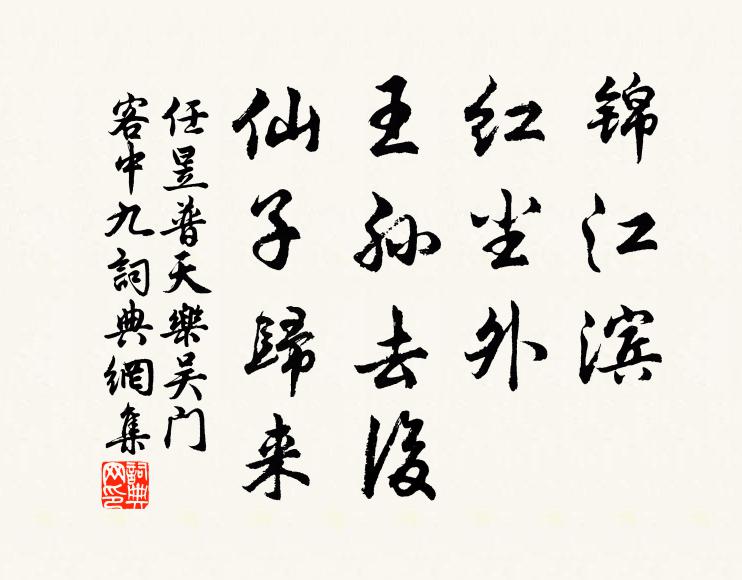 锦江滨
红尘外
王孙去後
仙子歸来
任昱普天樂吴门
客中九詞典網集
詞典网印